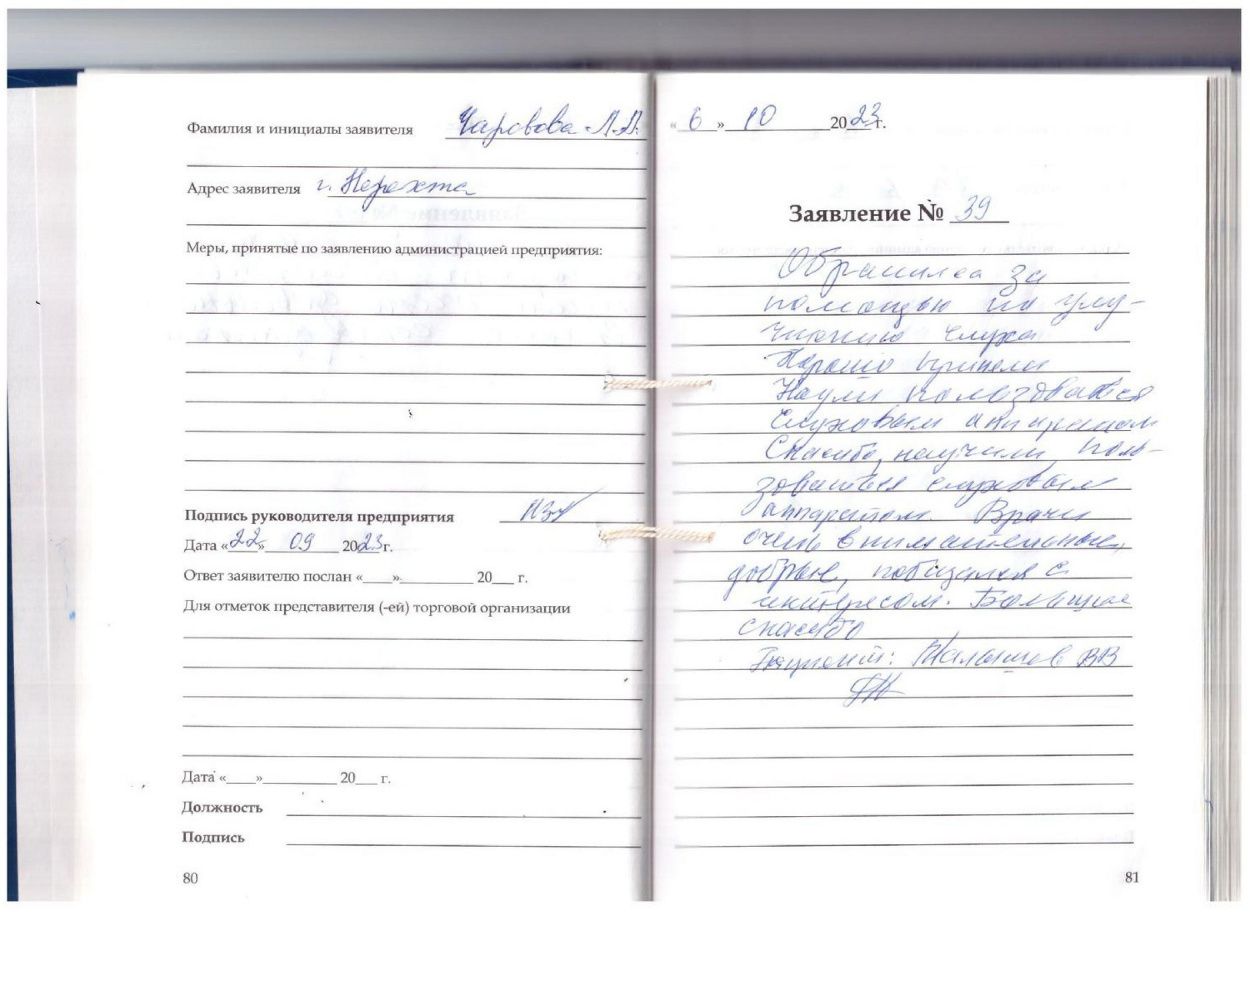 Фамилия и инициалы заявителя Чаровова Л.А.
Адрес заявителя г. Нерехта
Меры, принятые по заявлению администрацией предприятия:
Подпись руководителя предприятия
Дата «22» 09 2023 г.
Ответ заявителю послан «___»__________ 20___ г.
Для отметок представителя (-ей) торговой организации
Дата «____»__________ 20___ г.
Должность
Подпись
80
« 6 » 10 2023 г.
Заявление № 39
Обратился за
помощью по улу-
чшению слуха
Хорошо приняли
Научили пользоваться
слуховым аппаратом
Спасибо, научили поль-
зоваться слуховым
аппаратом. Врачи
очень внимательные,
добрые, общался с
интересом. Большое
спасибо
Пациент: Малышев ВВ
81